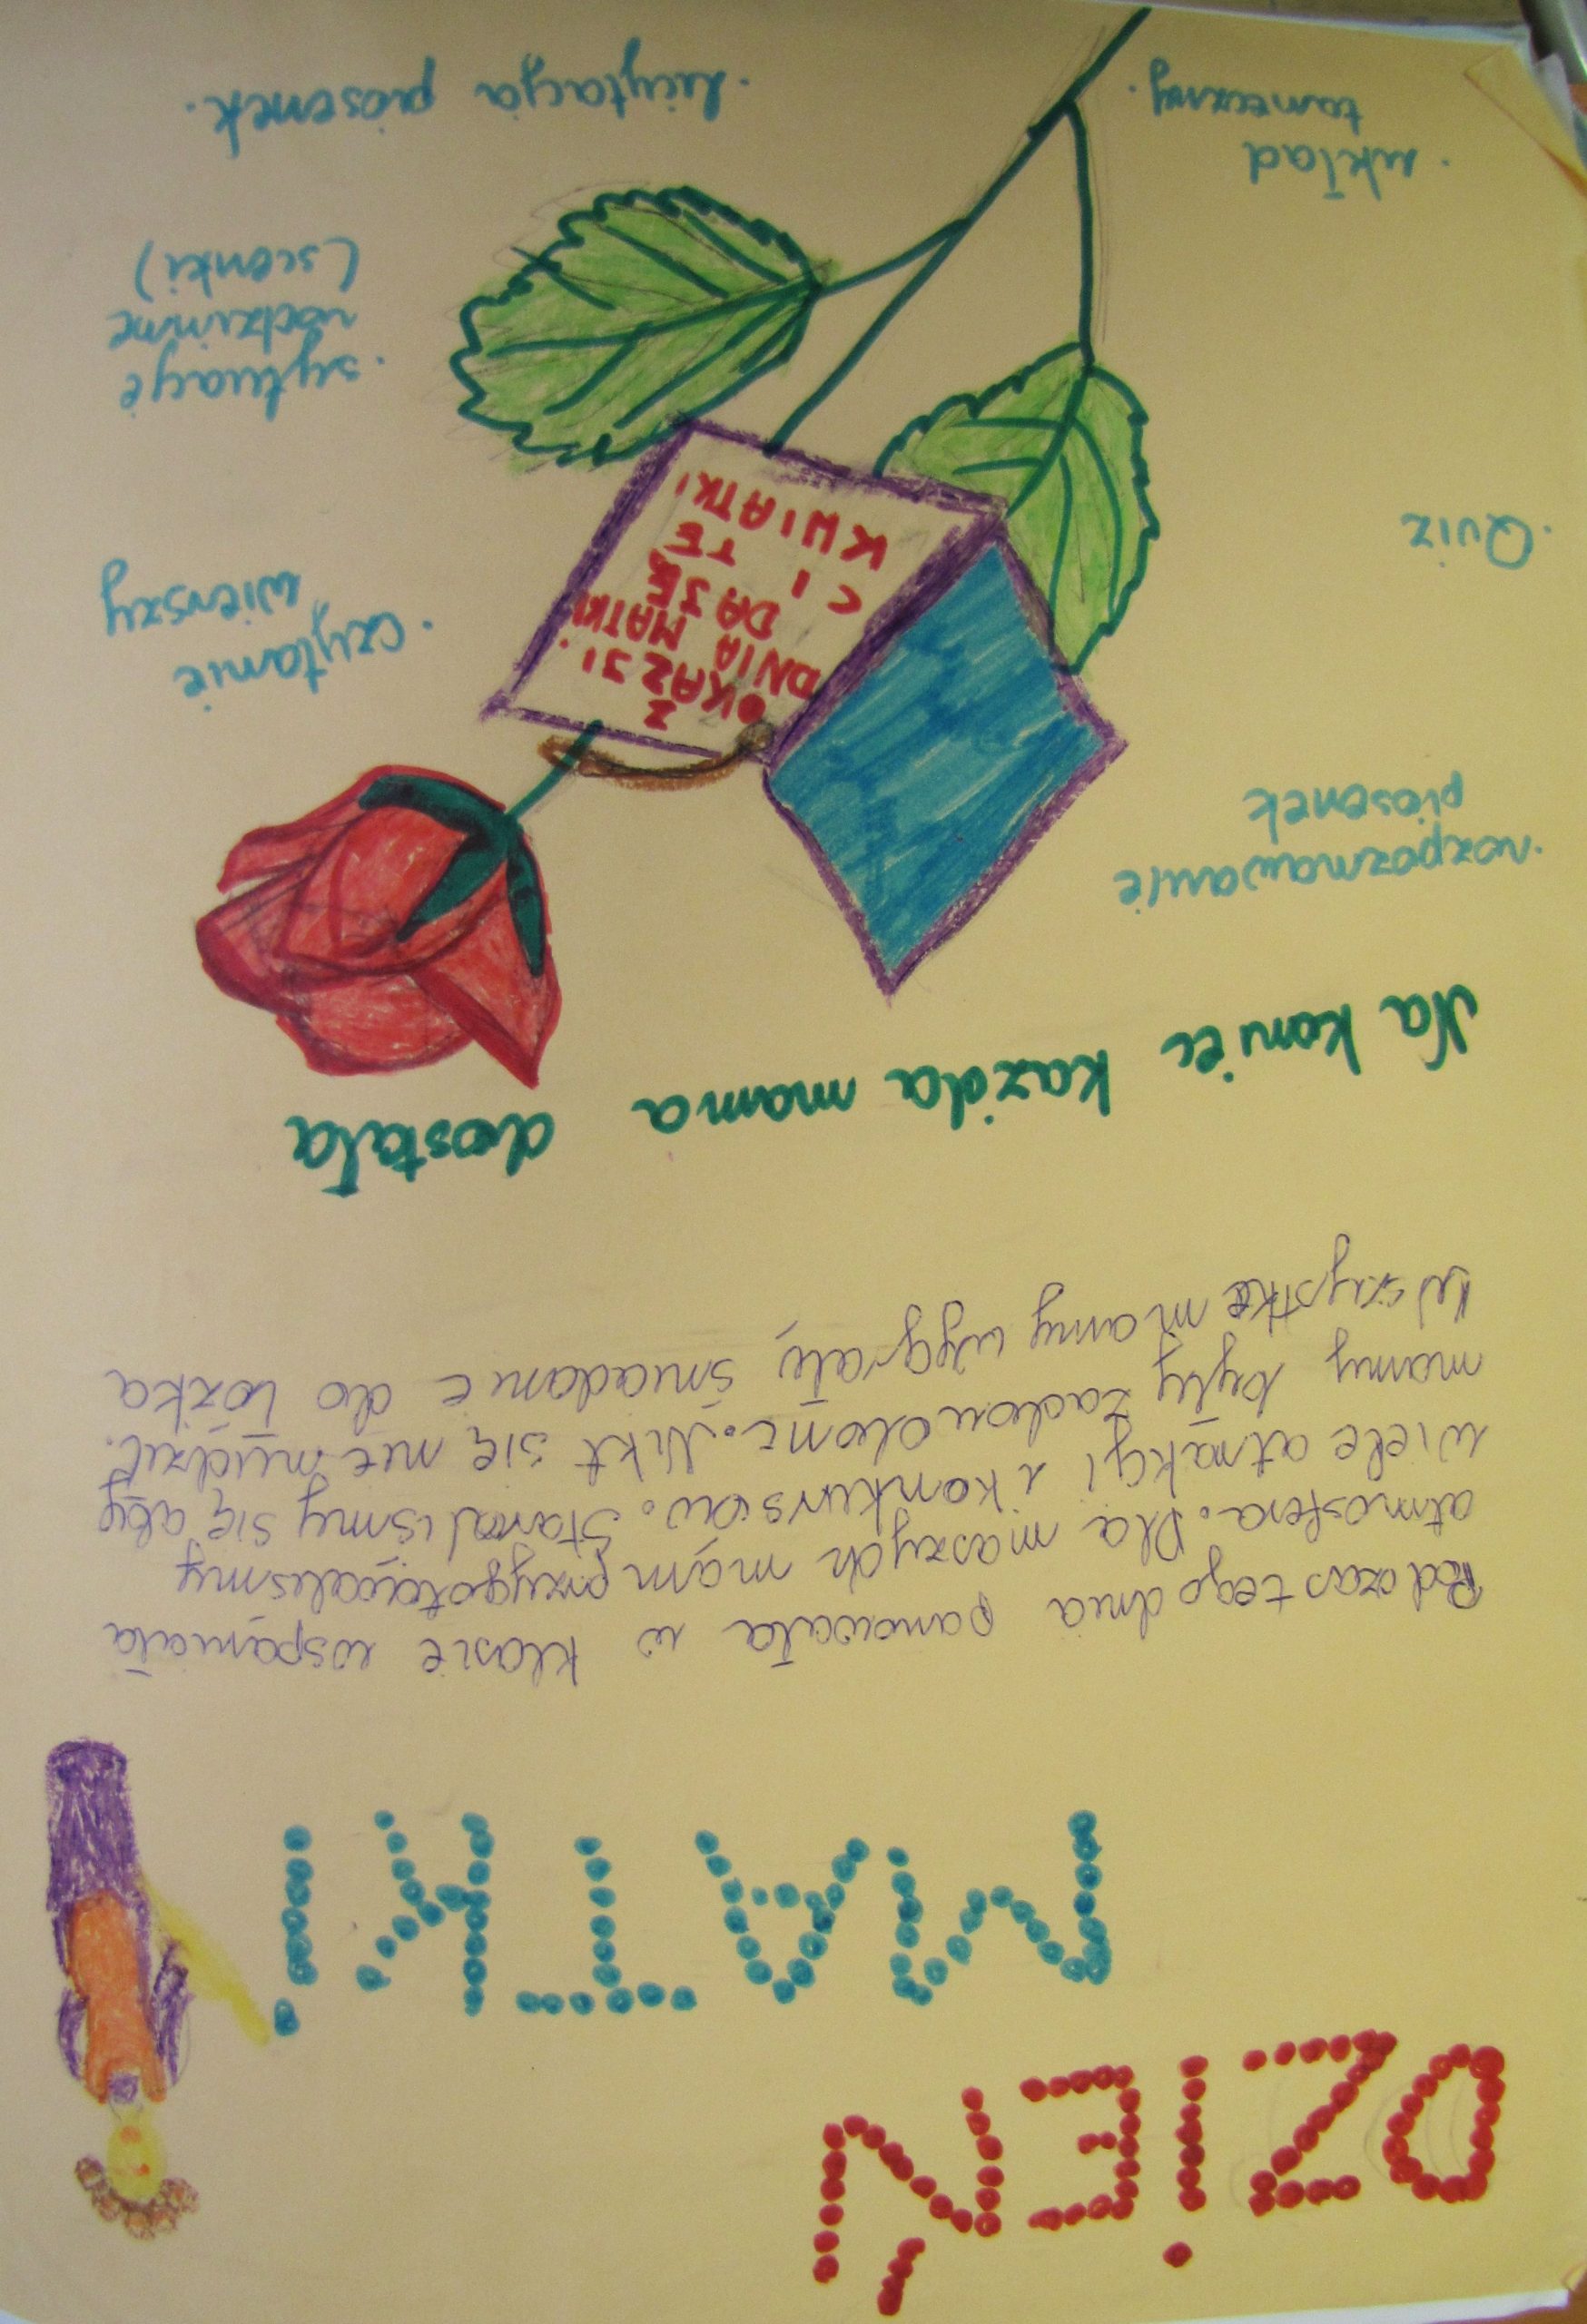 DZIEŃ
MATKI
Podczas tego dnia panowała w klasie wspaniała
atmosfera. Dla naszych mam przygotowaliśmy
wiele atrakcji i konkursów. Staraliśmy się aby
mamy były zadowolone. Nikt się nie nudził.
Wszystkie mamy wygrały śniadanie do łóżka
Na koniec każda mama dostała
· rozpoznawanie
piosenek
· Quiz
· układ
taneczny
· czytanie
wierszy
· sytuacje
rodzinne
(scenki)
· licytacja piosenek.
Z
OKAZJI
DNIA MATKI
DAJĘ
CI TE
KWIATKI